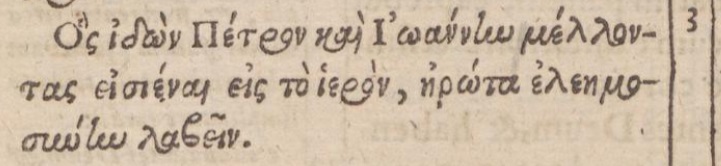 Ὃς ἰδὼν Πέτρον καὶ Ἰωάννην μέλλον- 3
τας εἰσιέναι εἰς τὸ ἱερὸν, ἠρώτα ἐλεημο-
σύνην λαβεῖν.